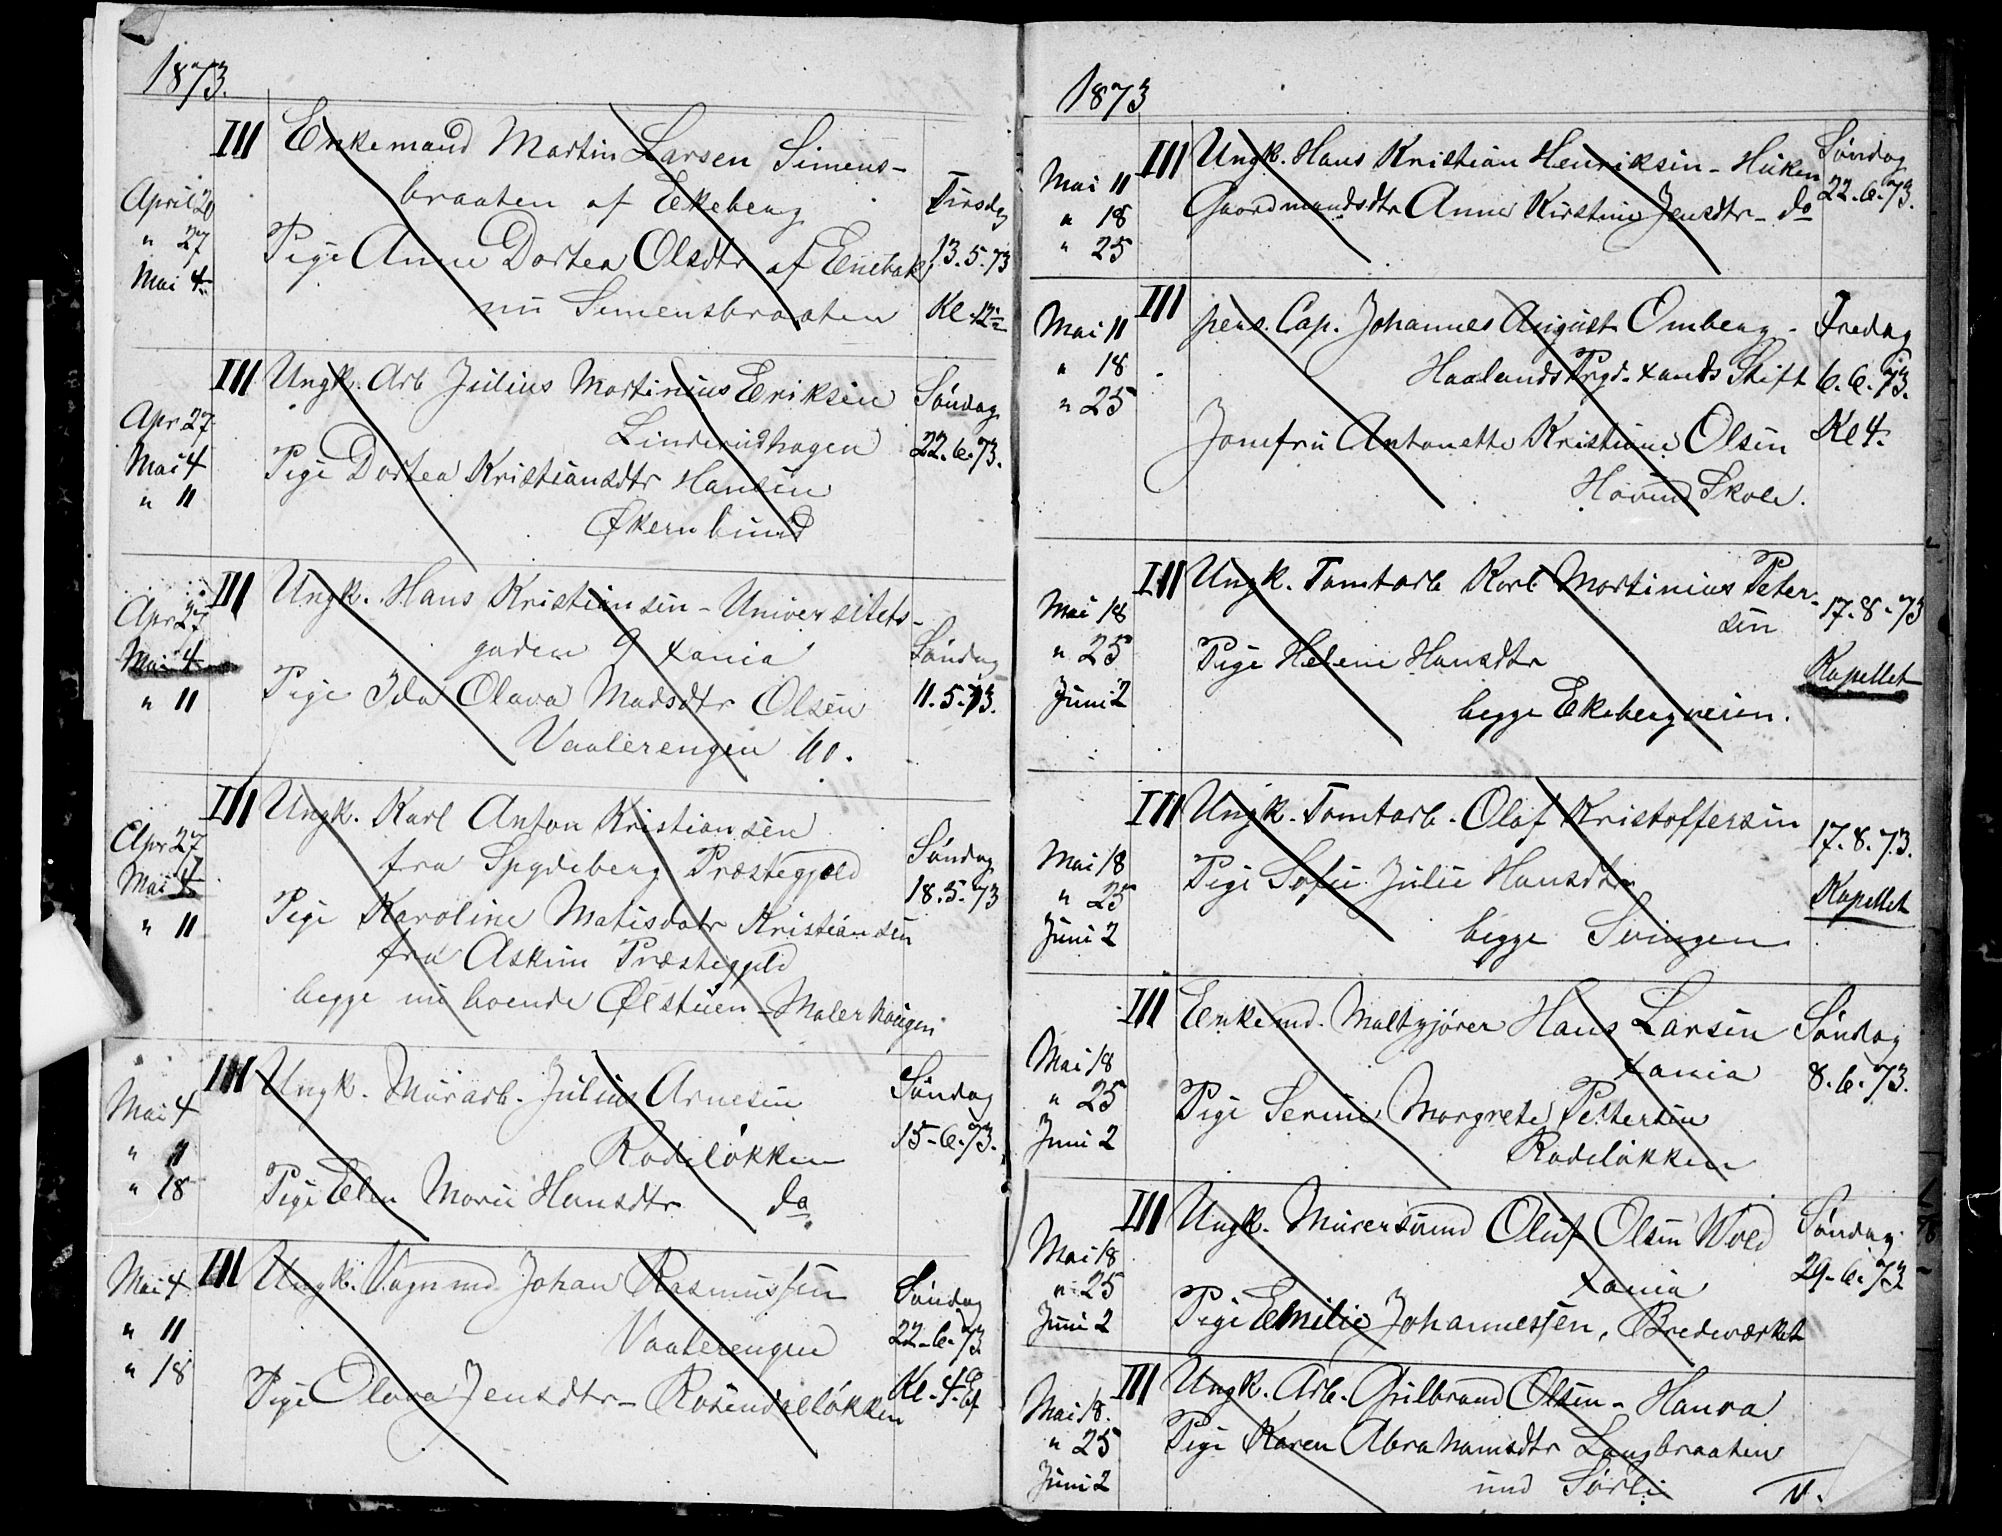 1873.
III Enkemand Martin Larsen Simens-
April 20 braaten af Ekeberg Tirsdag
" 27 Pige Anne Dortea Olsdtr af Enebak 13.5.73
Mai 4 nu Simensbraaten Kl. 12½
III Ungk. Arb Julius Martinius Eriksen Søndag
Apr 27 Linderudhagen 22.6.73.
Mai 4 Pige Dortea Kristiansdtr Hansen
" 11 Økern bund
III Ungk. Hans Kristiansen - Universitets-
Apr 27 gaden 9 Xania Søndag
Mai 4 Pige Ida Olava Madsdtr Olsen 11.5.73.
" 11 Vaalerengen 60.
III Ungk. Karl Anton Kristiansen
Apr 27 fra Spydeberg Præstegjeld Søndag
Mai 4 Pige Karoline Matisdatr Kristiansen 18.5.73
" 11 fra Askim Præstegjeld
begge nu boende Ølstuen - Malerhaugen
III Ungk. Murarb. Julius Arnesen Søndag
Mai 4 Rodeløkken 15-6.73.
" 11
" 18 Pige Elen Marie Hansdtr do.
Mai 4 III Ungk. Vognmd Johan Rasmussen Søndag
" 11 Vaalerengen 22-6-73
" 18 Pige Olava Jensdtr - Rosendalløkken Kl. 4
1873
III Ungk. Hans Kristian Henriksen - Huken Søndag
Mai 11 Gaardmandsdtr Anne Kirstine Jensdtr - do 22.6.73.
" 18
" 25
III pens. Cap. Johannes August Omberg - Fredag
Mai 11
" 18 Haalands Prgd. Xands Stift 6.6.73.
" 25 Jomfru Antonette Kristiane Olsen Kl 4.
Hovind Skole.
III Ungk. Tomtarb Karl Martinius Peter-
Mai 18 sen 17-8-73
" 25 Pige Helene Hansdtr Kapellet
Juni 2 begge Ekebergveien.
III Ungk. Tomtarb. Olaf Kristoffersen 17.8.73.
Mai 18 Pige Sofie Julie Hansdtr Kapellet
" 25
Juni 2 begge Svingen
III Enkemd. Maltgjører Hans Larsen Søndag
Mai 18 Xania 8.6.73.
" 25 Pige Serine Margrete Pettersen
Juni 2 Rodeløkken
III Ungk. Murersvend Oluf Olsen Wold Søndag
Mai 18 Xania 29-6.73
" 25 Pige Emilie Johannessen, Bredeværket
Juni 2
III Ungk. Arb. Gulbrand Olsen - Hanra
Mai 18. Pige Karen Abrahamsdtr Langbraaten
" 25 und Sørli
Juni 2 V.